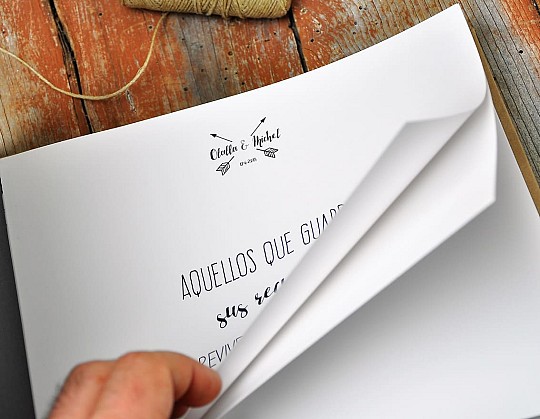 Olalla & Michel
AQUELLOS QUE GUARD
sus recu
REVIVE